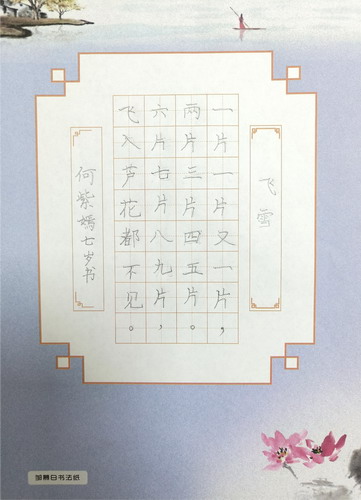 飞雪
一片一片又一片，
两片三片四五片。
六片七片八九片，
飞入芦花都不见。
何紫嫣七岁书
邹慕白书法纸